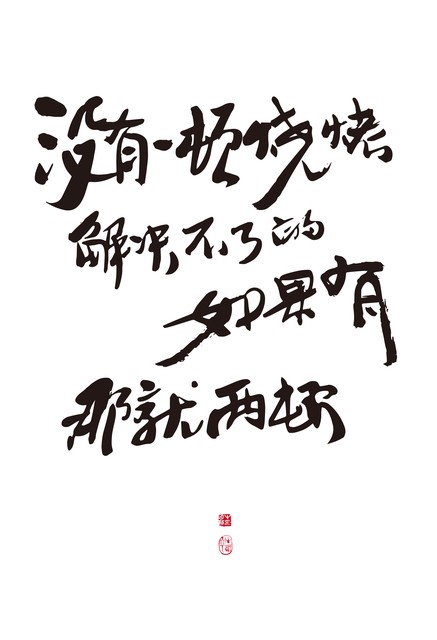 没有一顿烧烤
解决不了的
如果有
那就两顿